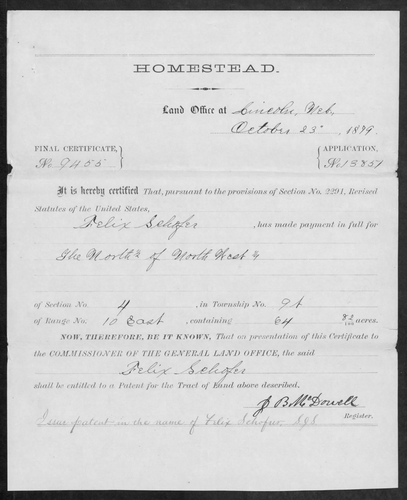 HOMESTEAD.
Land Office at Lincoln, Neb,
October 23, 1879
FINAL CERTIFICATE, APPLICATION,
No 9455 No 13857
It is hereby certified That, pursuant to the provisions of Section No. 2291, Revised
Statutes of the United States,
Felix Schofer, has made payment in full for
The North ½ of North West ¼
of Section No 4, in Township No. 9 t
of Range No. 10 East, containing 64 82/100 acres.
NOW, THEREFORE, BE IT KNOWN, That on presentation of this Certificate to
the COMMISSIONER OF THE GENERAL LAND OFFICE, the said
Felix Schofer
shall be entitled to a Patent for the Tract of Land above described.
J B McDowell
Register.
Issue patent in the name of Felix Schofer,